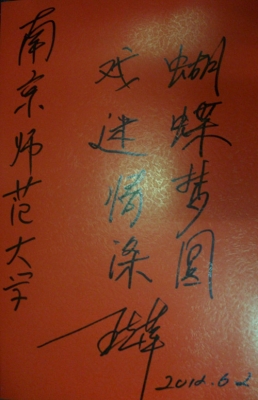 蝴蝶梦圆
戏迷情深
南京师范大学
2012.6.2